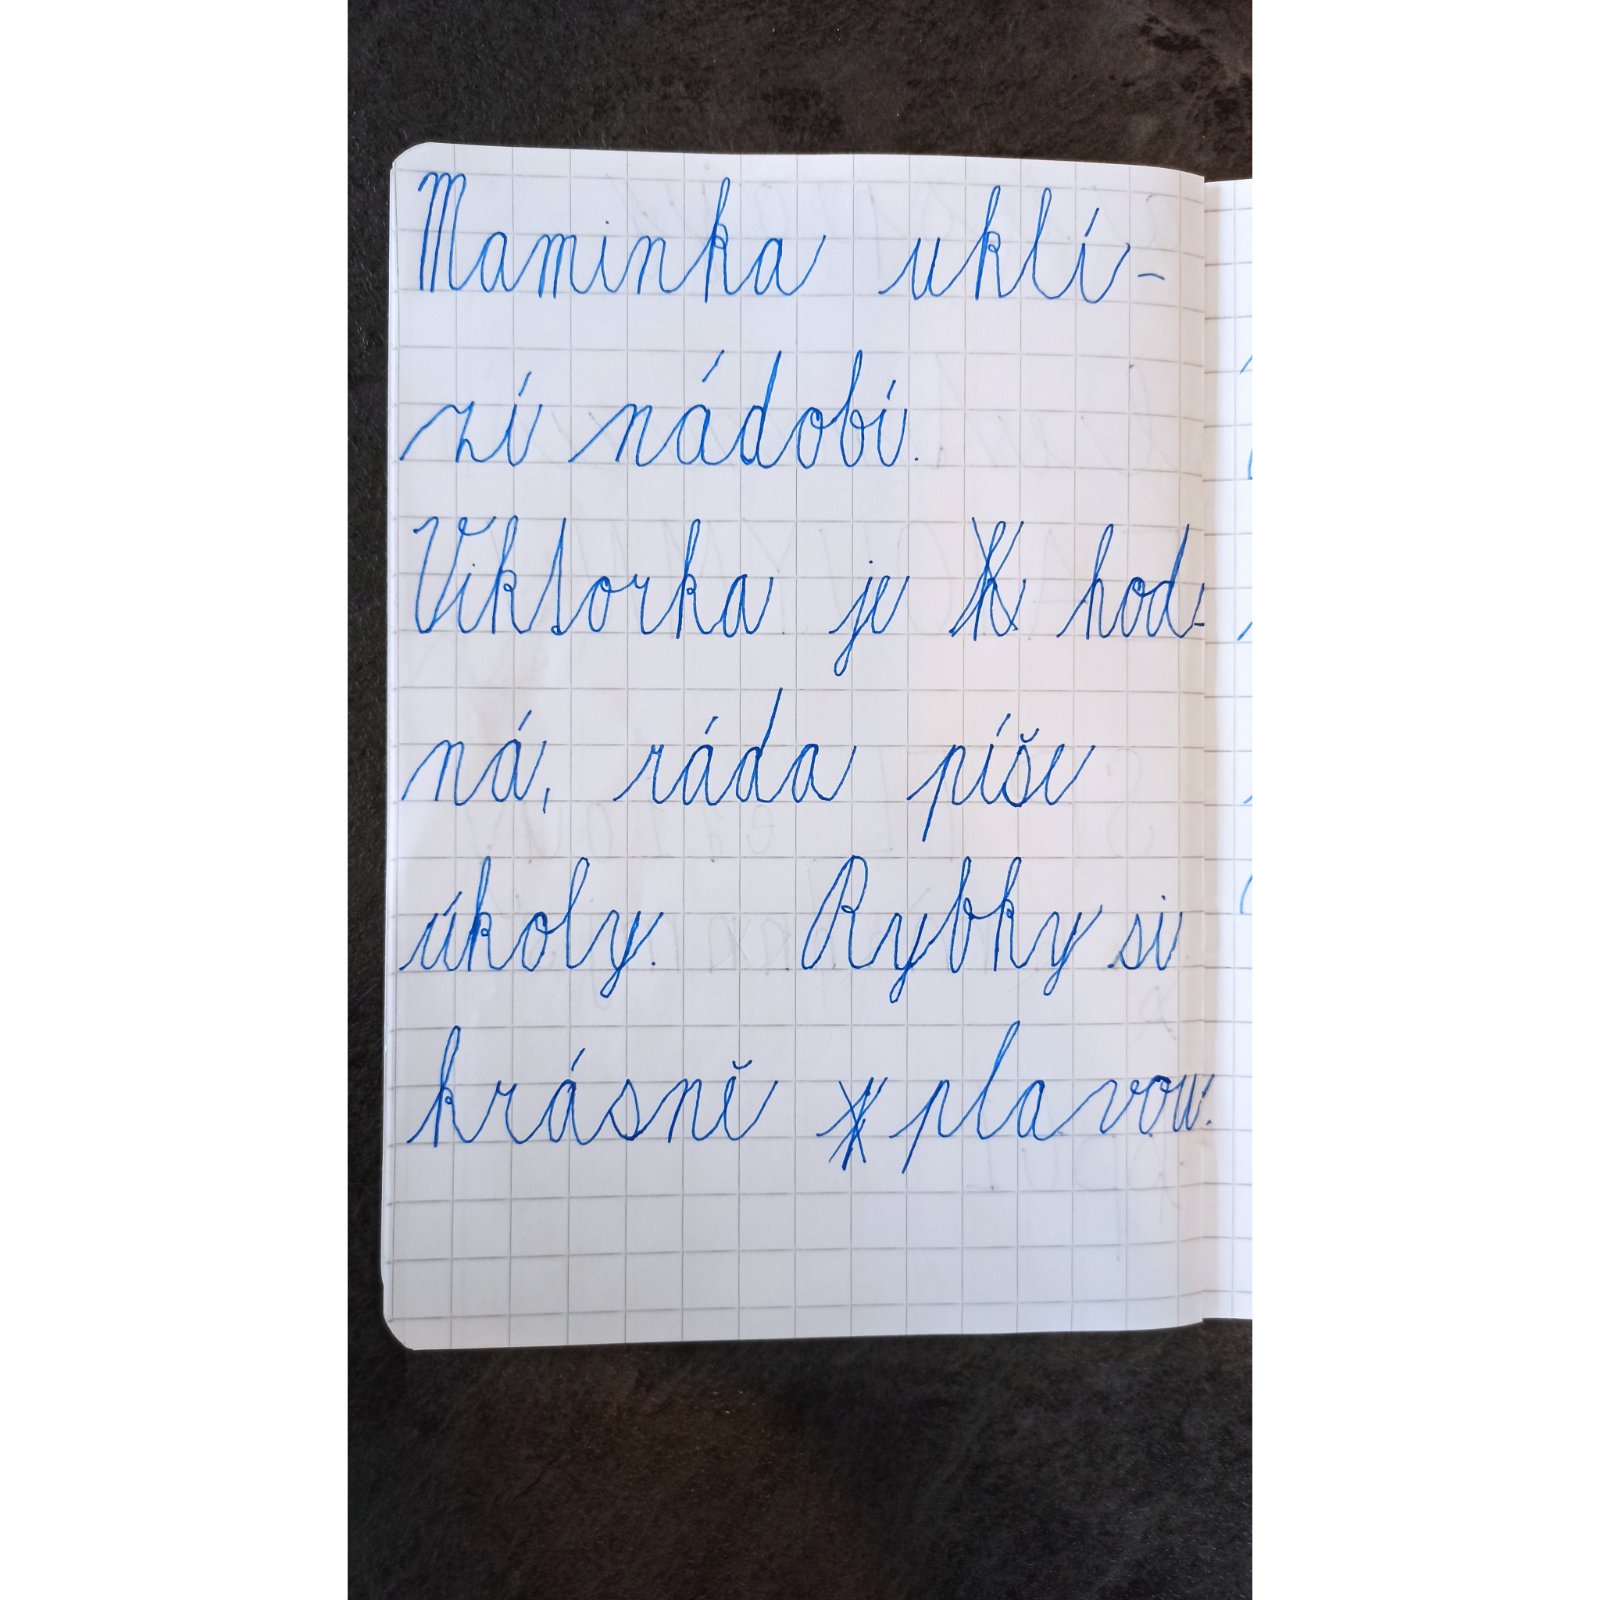 Maminka uklí-
zí nádobí.
Viktorka je hod-
ná, ráda píše
úkoly. Rybky si
krásně plavou.